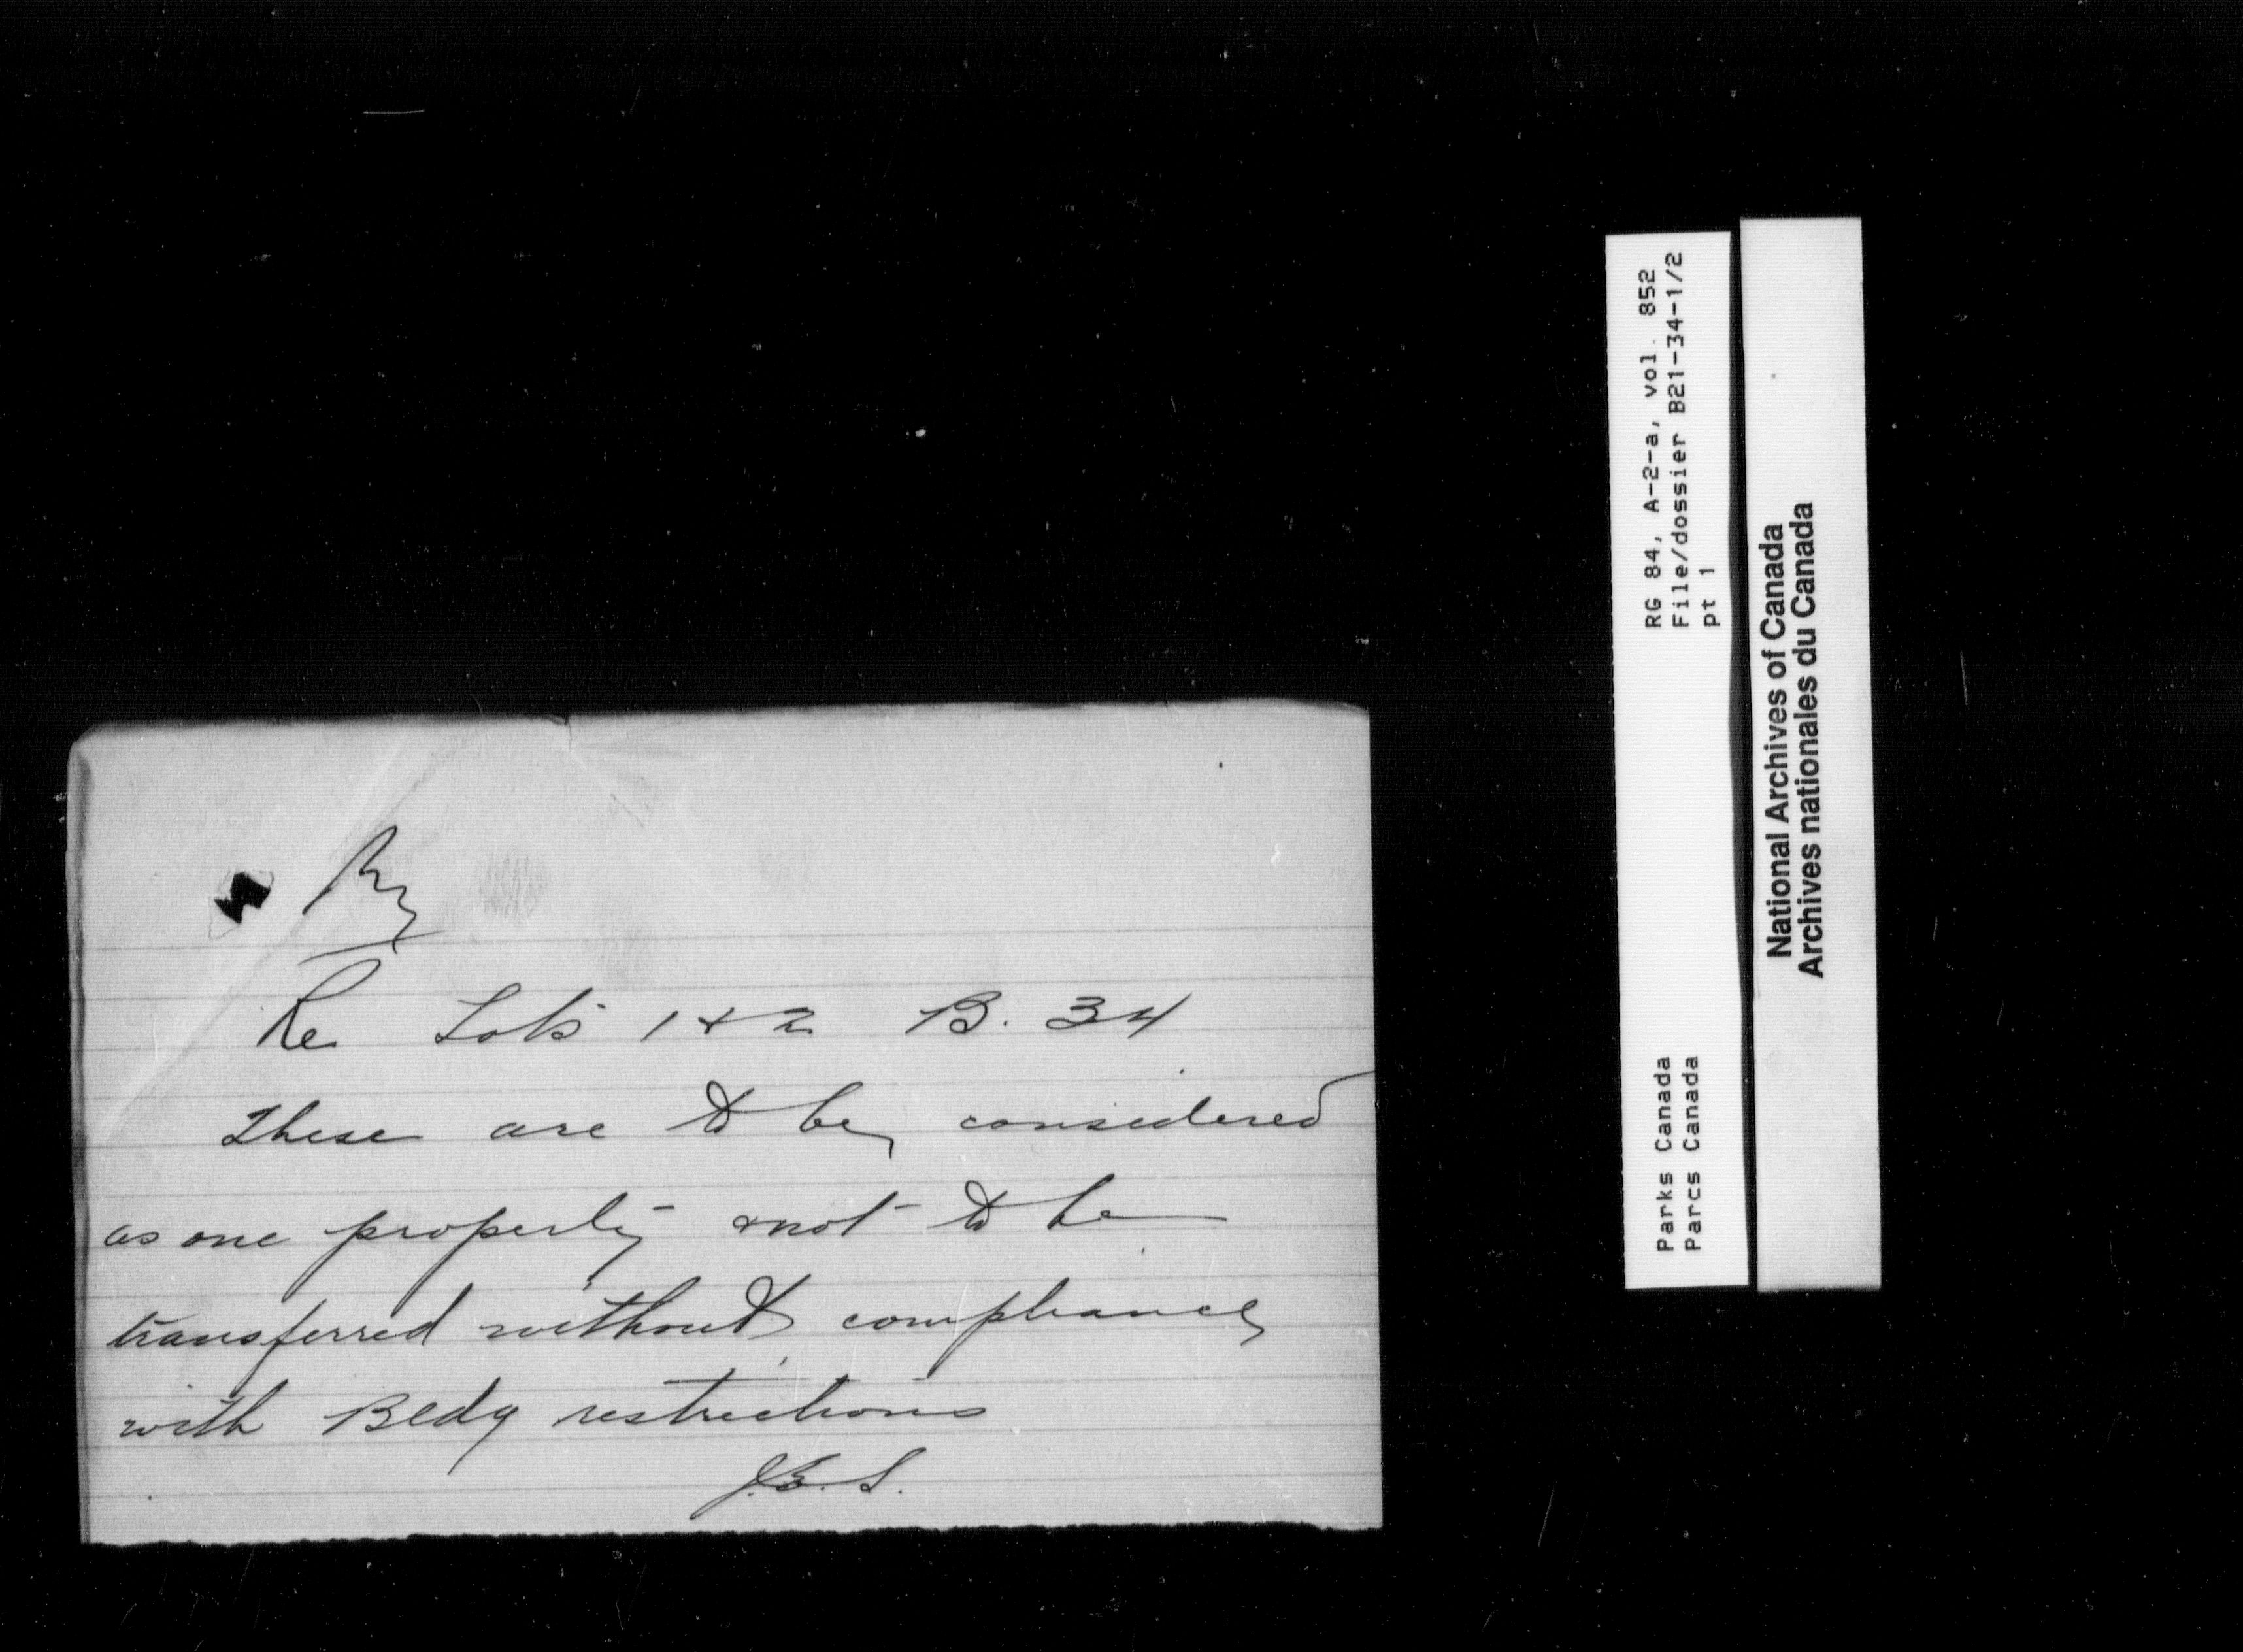 Re Lots 1 & 2 B. 34
These are to be considered
as one property & not to be
transferred without compliance
with Bldg restrictions
J.B.S.
RG 84, A-2-a, vol. 852
File/dossier B21-34-1/2
pt 1
Parks Canada
Parcs Canada
National Archives of Canada
Archives nationales du Canada